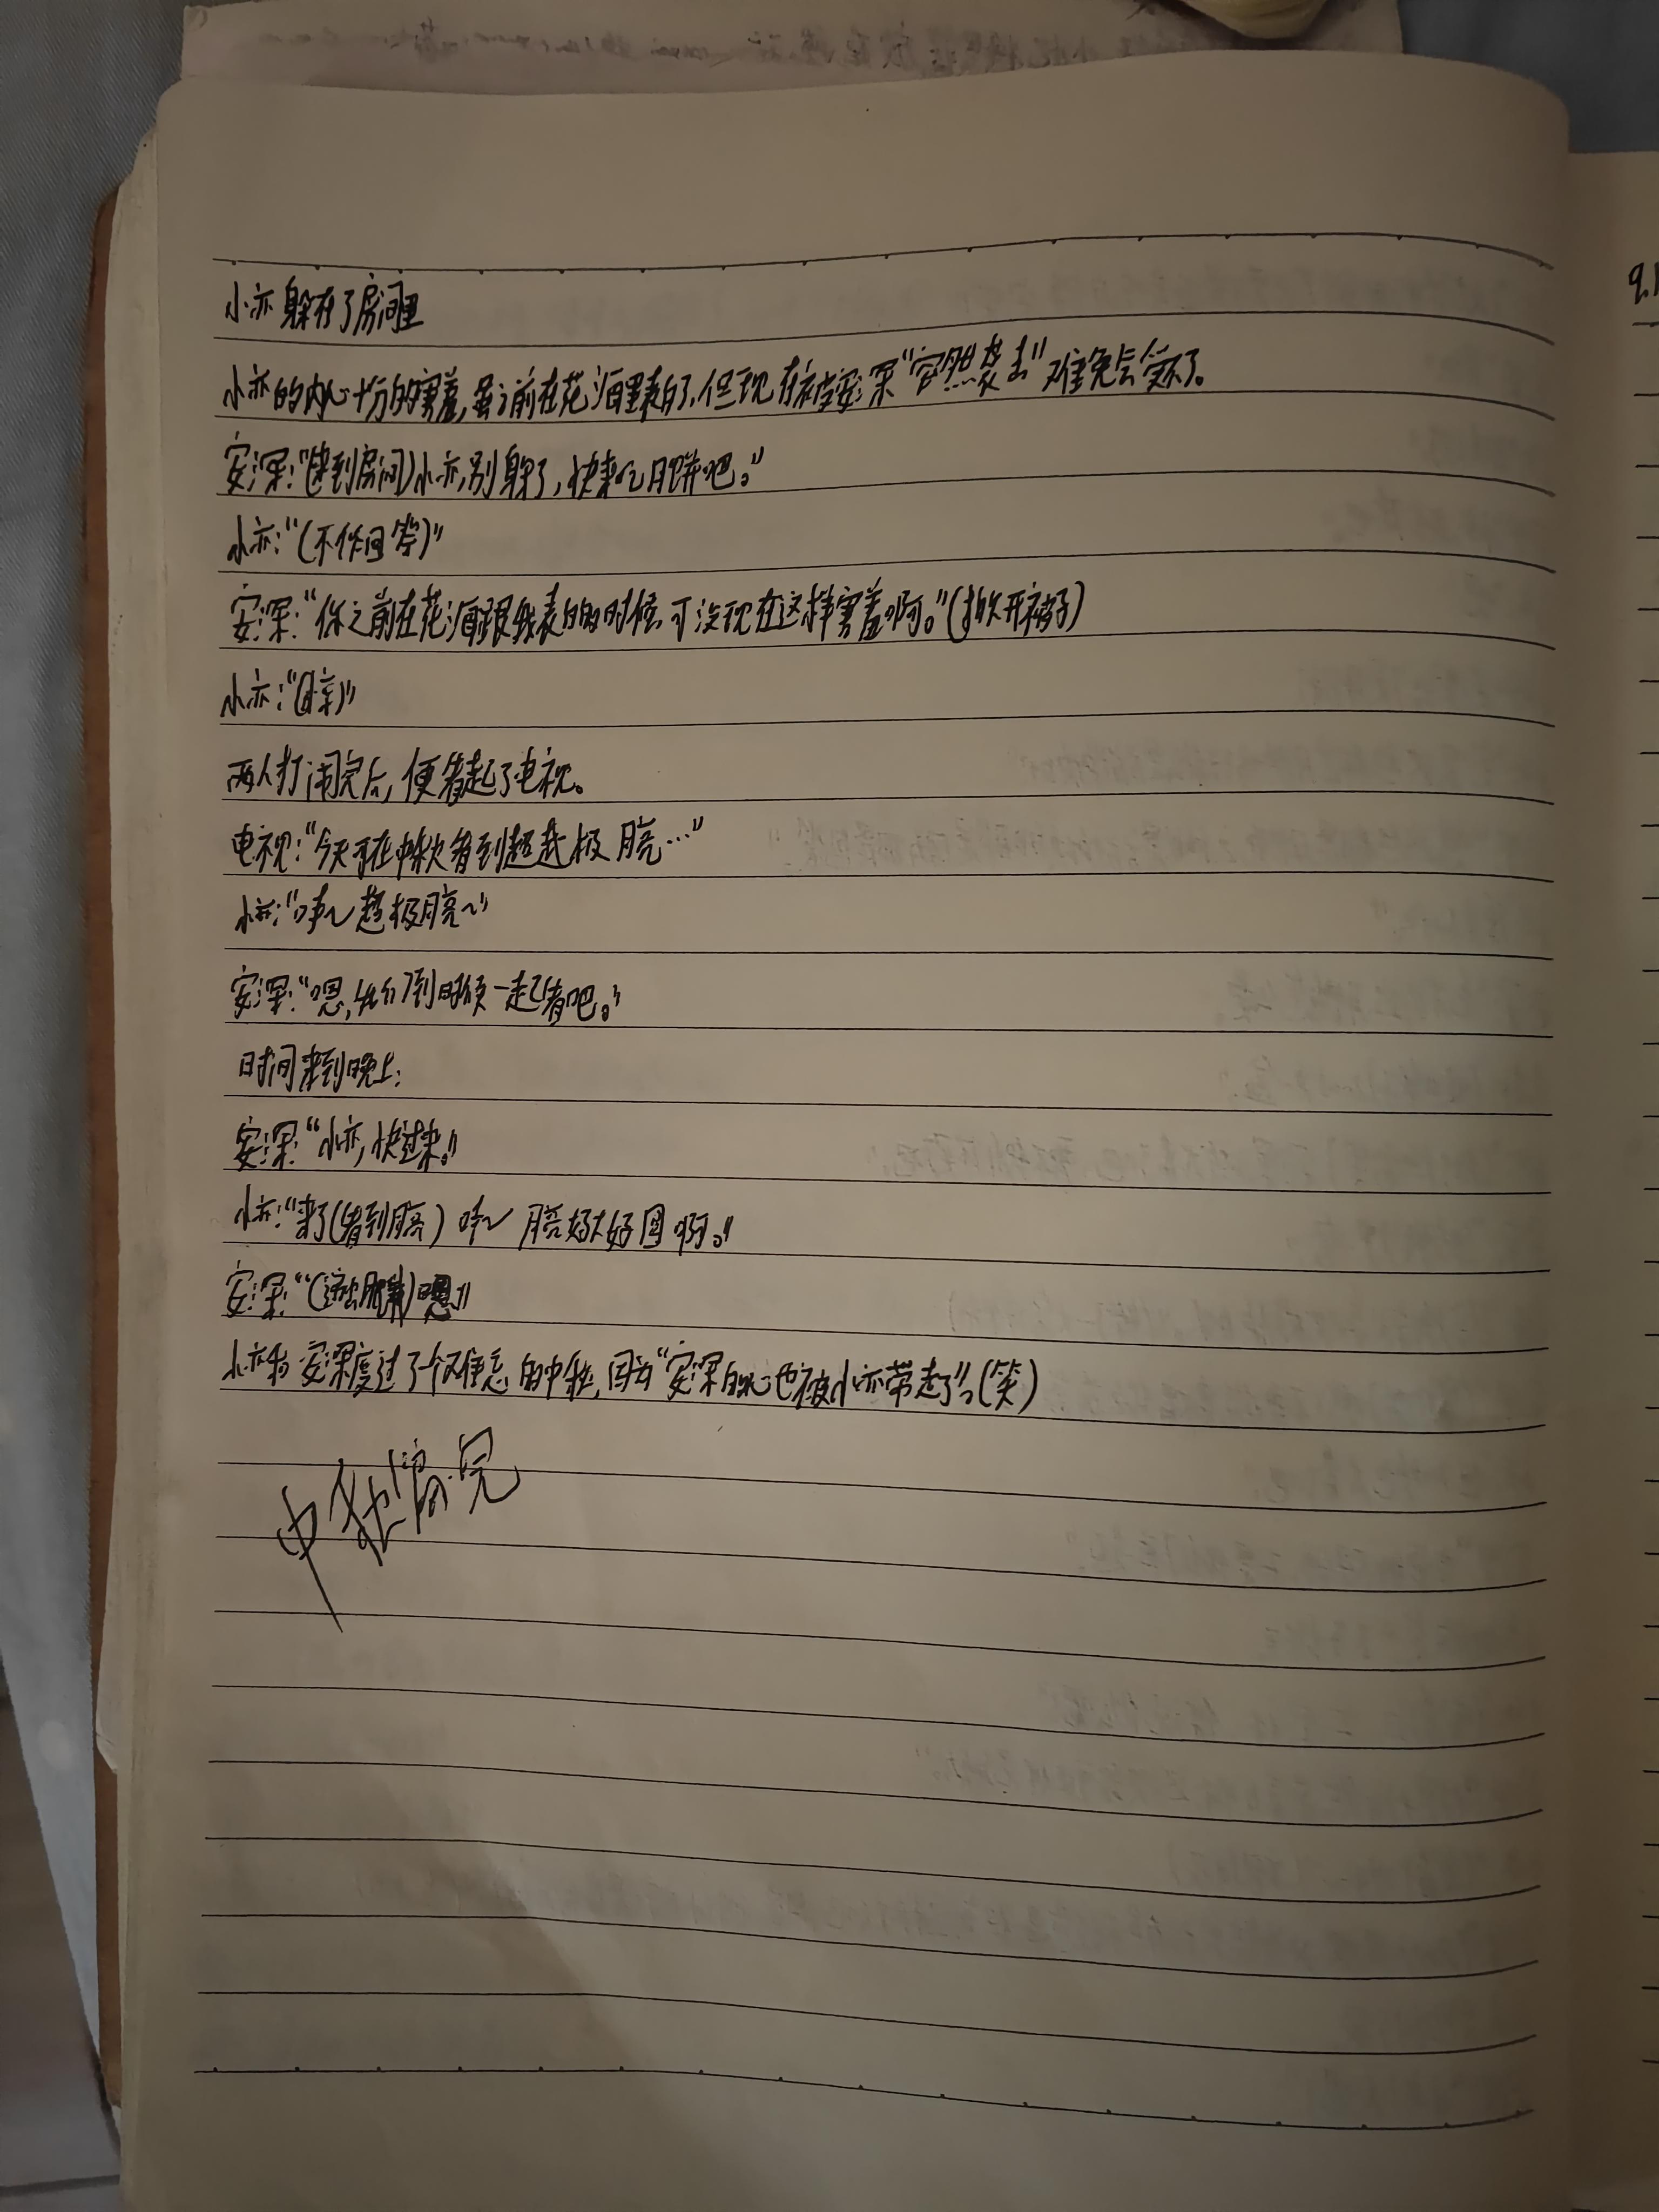 小亦躲在了房间里
小亦的内心十分的害羞,虽之前在花海里表白了,但现在被安深“突然袭击”难免会受不了。
安深:“(走到房间)小亦,别躲了,快来吃月饼吧。”
小亦:“(不作回答)”
安深:“你之前在花海跟我表白的时候,可没现在这样害羞啊。”(掀开被子)
小亦:“(哼)”
两人打闹完后,便看起了电视。
电视:“今天可在中秋看到超级 月亮…”
小亦:“哇~超级月亮~”
安深:“嗯,我们到时候一起看吧。”
时间来到晚上:
安深:“小亦,快过来。”
小亦:“来了(看到月亮) 哇~ 月亮好大好圆啊。”
安深:“嗯”
小亦和安深度过了一个难忘的中秋,因为“安深的心也被小亦带走了”。(笑)
中秋篇·完
9.1